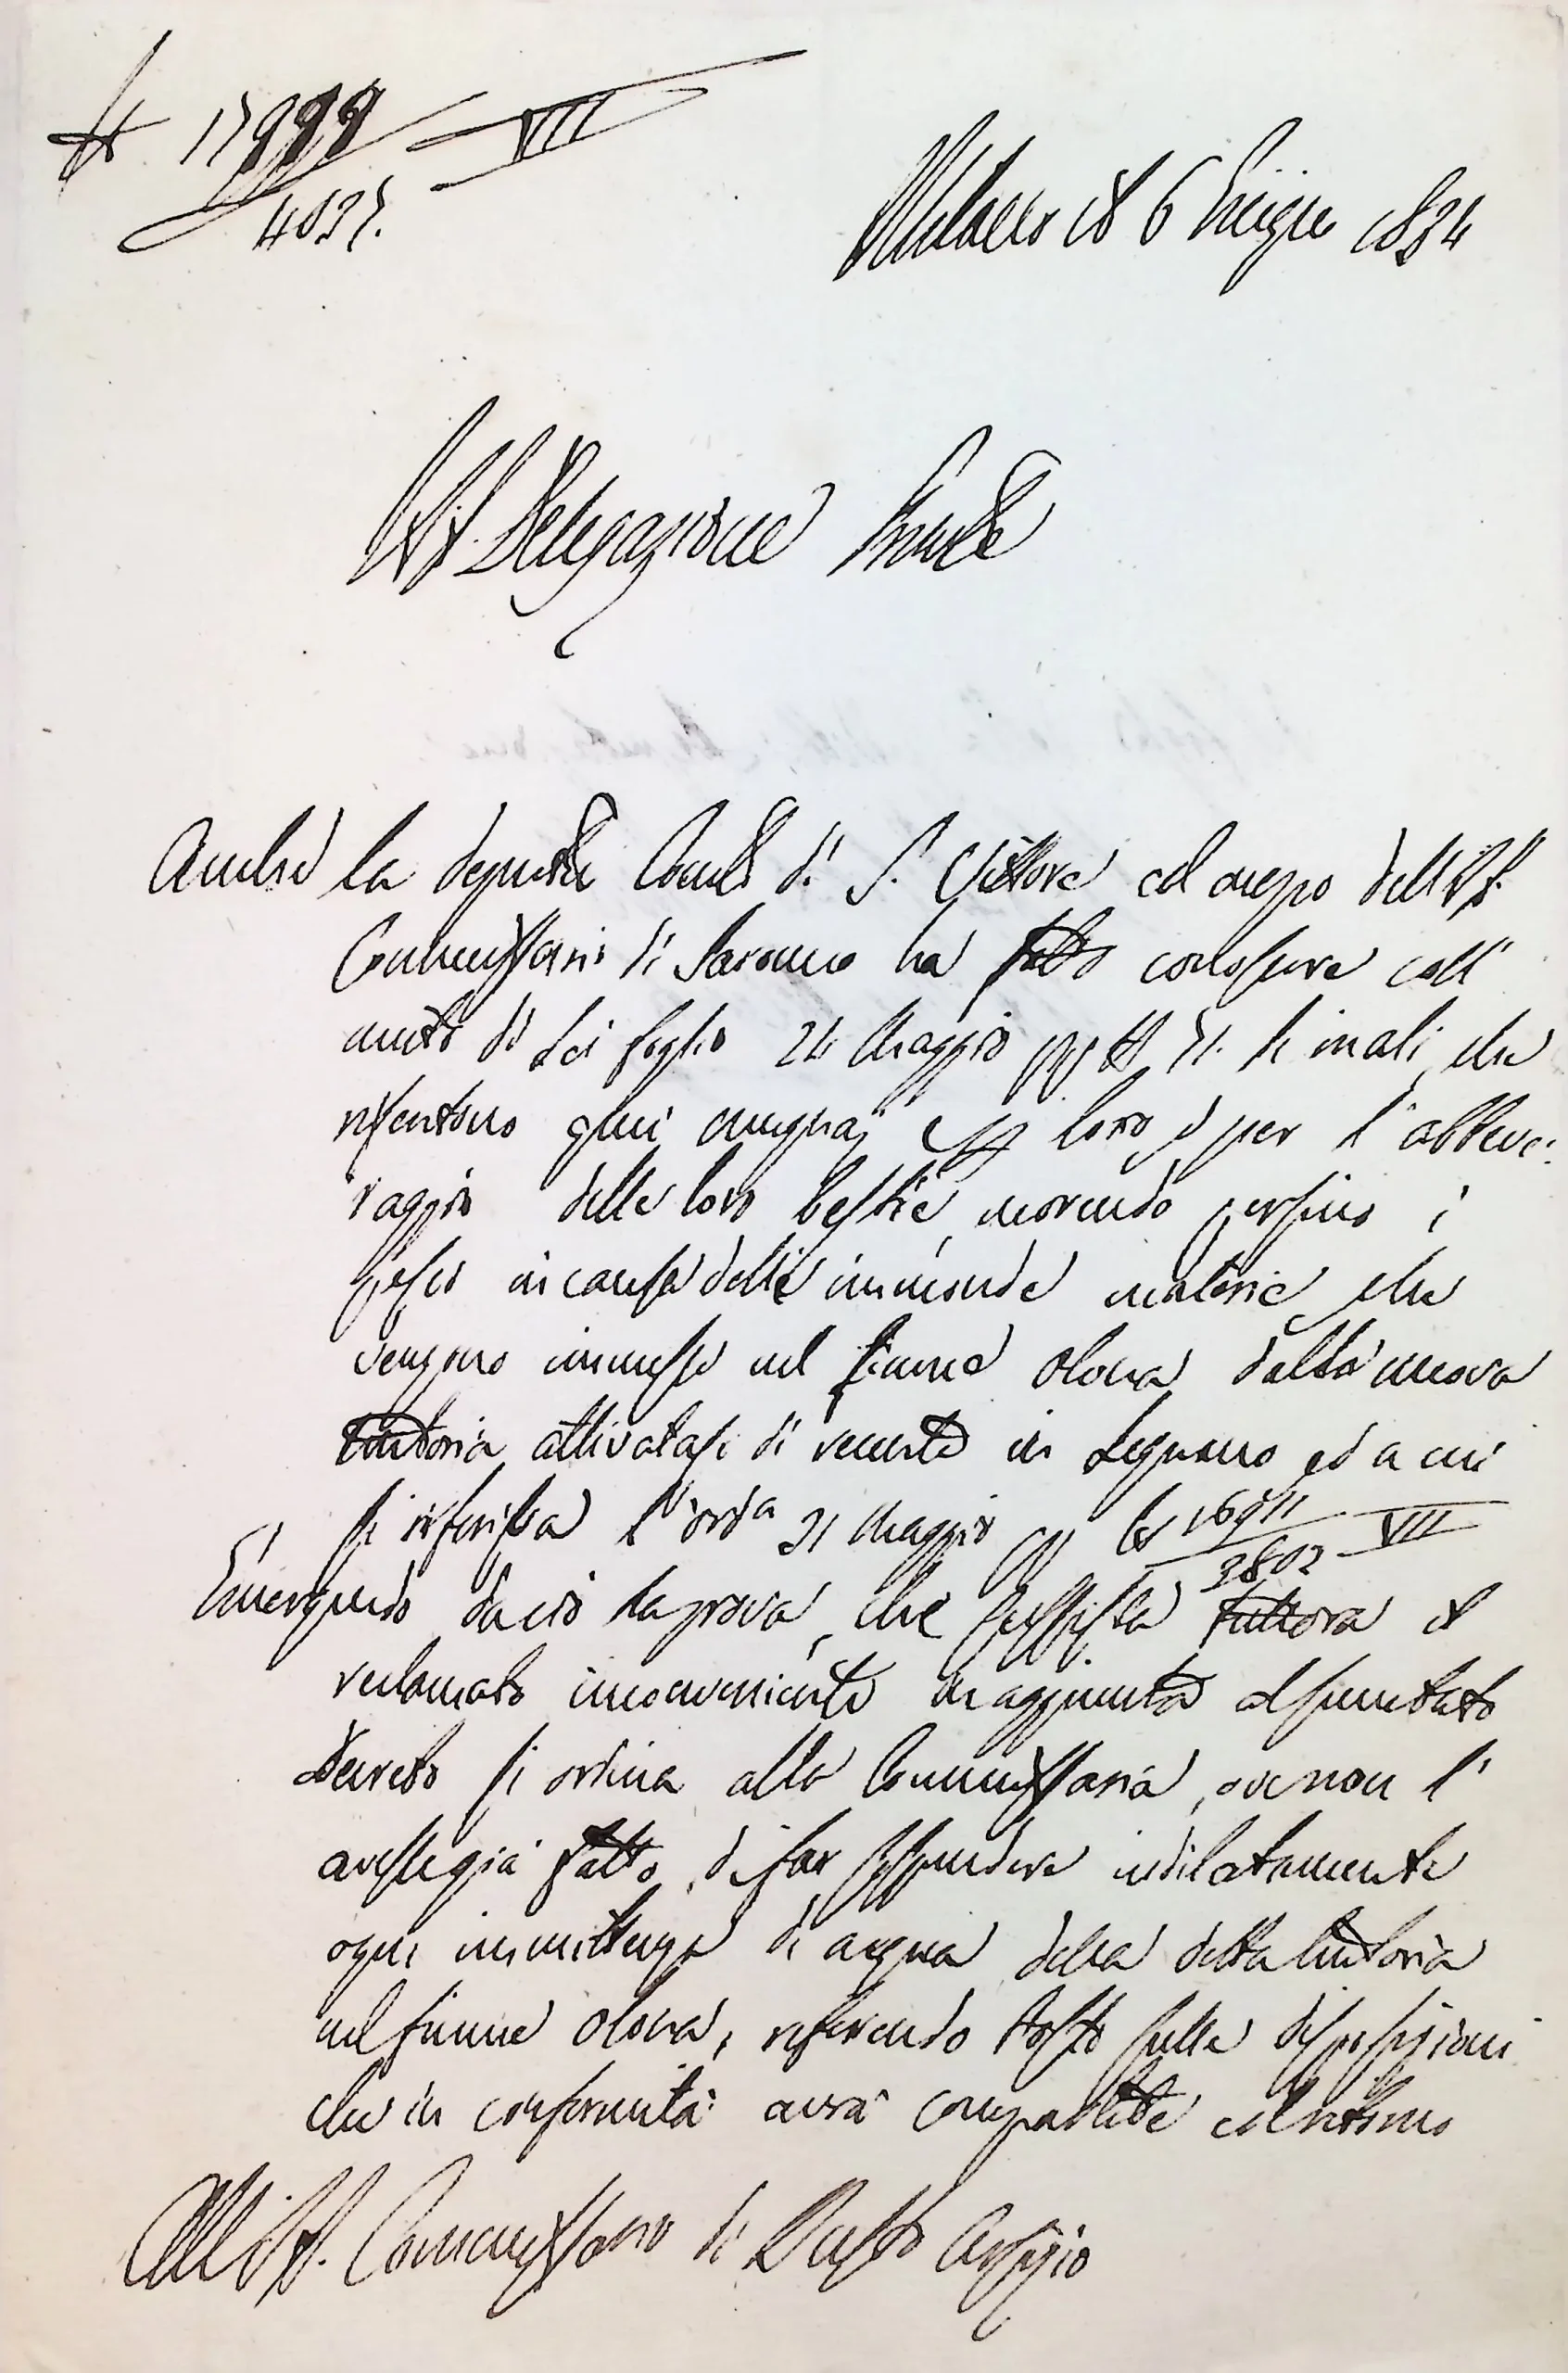 N 17999 VII
4037.
Milano il 6 Giugno 1834
L'I. R. Delegazione Prov.le
Anche la Deputaz.e Com.le di S. Vittore col mezzo dell'I. R.
Commissario di Saronno ha fatto conoscere coll'
unito di Lei foglio 24 Maggio pp. N 71. li mali che
risentono quei mugnaj e per l'abbeve:
raggio delle loro bestie, morendo persino i
pesci in causa delle immonde materie che
vengono immesse nel fiume Olona dalla nuova
tintoria attivatasi di recente in Legnano ed a cui
si riferisce l'ord.a 31 Maggio pp. N 16911 VII
3802
Emergendo da ciò la prova, che sussista tuttora il
reclamato inconveniente in aggiunta al surricordato
Decreto si ordina alla Commissaria, ove non l'
avesse già fatto, di far sospendere indilatamente
ogni immittenza di acqua della detta tintoria
nel fiume Olona, riferendo tosto sulle disposizioni
che in conformità avrà compartite
All'I. R. Commissario di Busto Arsizio